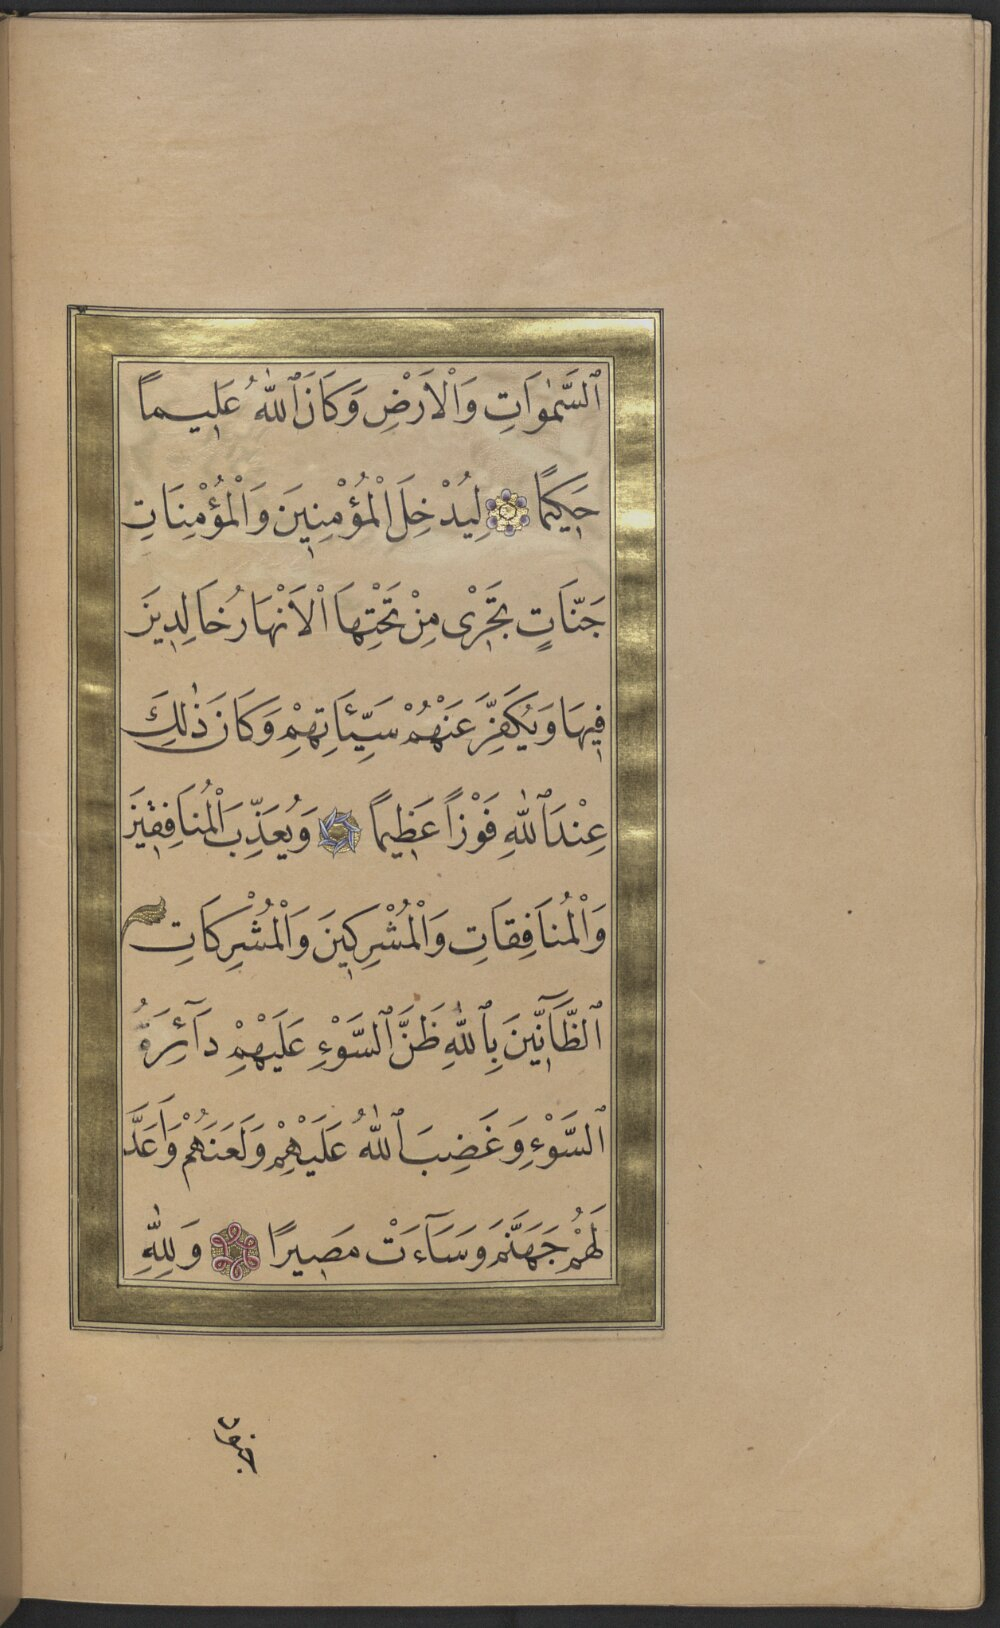 ٱلسَّمٰوَاتِ وَٱلْاَرْضِ وَكَانَ ٱللّٰهُ عَلِيماً
حَكِيماً لِيُدْخِلَ ٱلْمُؤْمِنِينَ وَٱلْمُؤْمِنَاتِ
جَنَّاتٍ تَجْرِى مِنْ تَحْتِهَا ٱلْاَنْهَارُ خَالِدِينَ
فِيهَا وَيُكَفِّرَ عَنْهُمْ سَيِّئَاتِهِمْ وَكَانَ ذٰلِكَ
عِنْدَ ٱللّٰهِ فَوْزاً عَظِيماً وَيُعَذِّبَ ٱلْمُنَافِقِينَ
وَٱلْمُنَافِقَاتِ وَٱلْمُشْرِكِينَ وَٱلْمُشْرِكَاتِ
ٱلظَّآنِّينَ بِٱللّٰهِ ظَنَّ ٱلسَّوْءِ عَلَيْهِمْ دَآئِرَةُ
ٱلسَّوْءِ وَغَضِبَ ٱللّٰهُ عَلَيْهِمْ وَلَعَنَهُمْ وَاَعَدَّ
لَهُمْ جَهَنَّمَ وَسَآءَتْ مَصِيرًا وَلِلّٰهِ